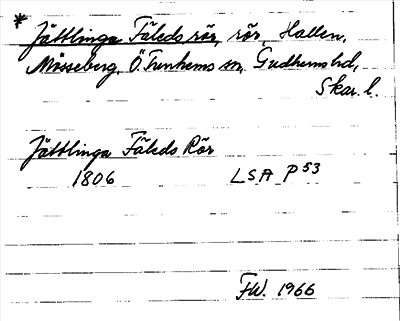 * Jättlinga Fäleds rör, rör, Hallen,
Mösseberg, Ö. Tunhems sn, Gudhems hd,
Skar. l.
Jättlinga Fäleds Rör
1806 LSA P 53
F.W. 1966